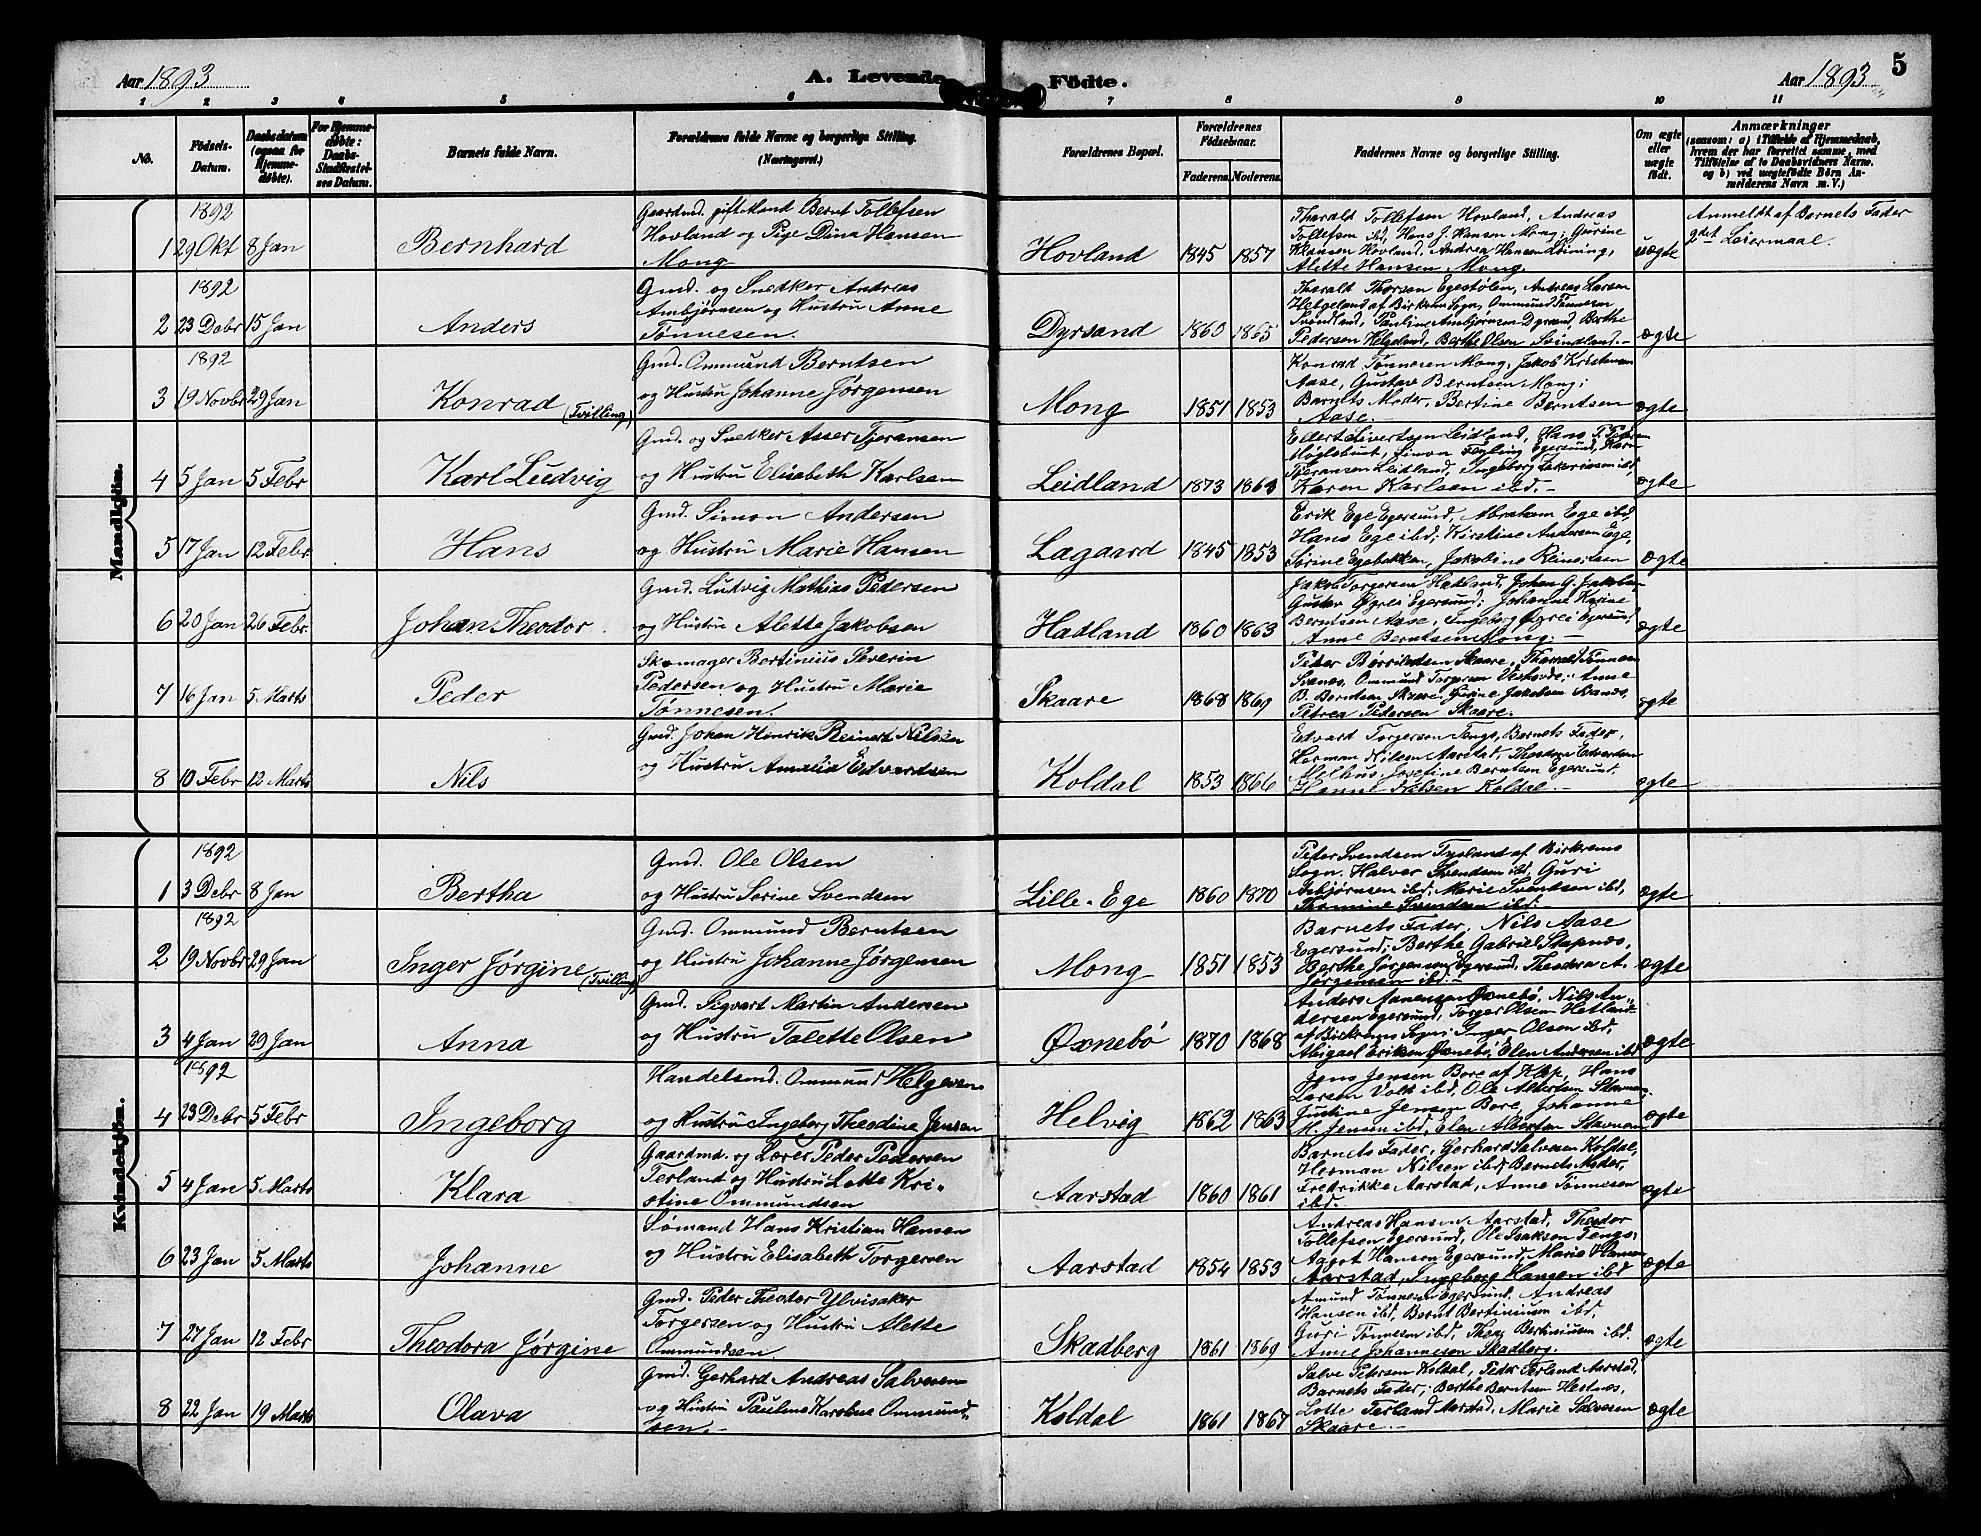 Aar 1893
A. Levende Födte.
Aar 1893
5
1 2 3 4 5 6 7 8 9 10 11
No.
Födsels-Datum.
Daabsdatum (ogsaa for Hjemme-döbte).
For Hjemme-döbte: Daabs-Stadfæstel-ses Datum.
Barnets fulde Navn.
Forældrenes fulde Navne og borgerlige Stilling. (Næringsvei.)
Forældrenes Bopæl.
Forældrenes Födselsaar.
Faderens. Moderens.
Faddernes Navne og borgerlige Stilling.
Om ægte eller uægte födt.
Anmærkninger
(saasom: a) i Tilfælde af Hjemmedaab, hvem der har forrettet samme, med Tilföielse af to Daabsvidners Navne, og b) ved uægtefödte Börn An-melderens Navn m. V.)
Mandkjön.
1892
1 29 Okt 8 Jan
Bernhard
Gaardmd. gift Mand Bernt Tollefsen
Hovland og Pige Dina Hansen
Mong
Hovland 1845 1857
Tharald Tollefsen Hovland, Andreas
Tollefsen ibd, Hans J. Hansen Mong; Gurine
Hansen Hovland, Andrea Hansen
Alette Hansen Mong.
uægte
Anmeldt af Barnets Fader
2det Leiermaal.
1892
2 23 Debr 15 Jan
Anders
Gmd. og Snedker Andreas
Ambjørnsen og Hustru Anne
Tønnesen.
Dyrsand 1860 1865
Tharald Thorsen Egestølen, Andreas Larsen
Helgeland af Birkrem Sogn, Ommund Tønnesen
Svindland, Pauline Ambjørnsen Dyrsand, Berthe
Pedersen Helgeland, Berthe Olsen Svindland.-
ægte
1892
3 19 Novbr 29 Jan
Konrad (Tvilling)
Gmd. Ommund Berntsen
og Hustru Johanne Jørgensen
Mong 1851 1853
Konrad Tønnesen Mong, Jakob Kristensen
Aase, Gustav Berntsen Mong;
Barnets Moder, Bertine Berntsen
Aase.
ægte
4 5 Jan 5 Febr
Karl Ludvig
Gmd. og Snedker Asser Tjoransen
og Hustru Elisabeth Karlsen
Leidland 1873 1863
Ellert Sivertsen Leidland, Hans P. Petersen
Simon Egersund, Karn
Tjoransen Leidland, Ingeborg ibd.
Karen Karlsen ibd.-
ægte
5 17 Jan 12 Febr
Hans
Gmd. Simon Andersen
og Hustru Marie Hansen
Lagaard 1845 1853
Erik Ege Egersund, Abraham Ege ibd,
Hans Ege ibd; Kirstine Andersen Ege,
Sørine Egebakken, Jakobine Reinertsen
ægte
6 20 Jan 26 Febr.
Johan Theodor.
Gmd. Ludvig Mathias Pedersen
og Hustru Alette Jakobsen
Hadland 1860 1863
Jakob Torgersen Hadland, Johan G. Jakobsen
Gustav Øgrei Egersund; Johanne Karine
Berntsen Aase, Ingeborg Øgrei Egersund,
Anne Berntsen Mong.-
ægte
7 16 Jan 5 Marts
Peder
Skomager Bertinius Severin
Pedersen og Hustru Marie
Tønnesen.
Skaare 1868 1869
Peder Skaare, Tharald Tønnesen
Svanes, Ommund Torgersen Anne
B. Berntsen Skaare, Gurine Jakobsen Svanes,
Petrea Pedersen Skaare.
ægte
8 10 Febr 12 Marts
Nils
Gmd. Johan Henrik Reinert Nilsen
og Hustru Amalia Edvardsen
Koldal 1853 1866
Edvard Torgersen Tengs, Barnets Fader,
Herman Nilsen Aarstad, Theodora Edvardsen
Melhus, Josefine Berntsen Egersund.
Hanne Nilsen Koldal.-
ægte
Kvindekjön.
1892
1 3 Debr 8 Jan
Bertha
Gmd. Ole Olsen
og Hustru Serine Svendsen
Lille-Ege 1860 1870
Peder Svendsen Tysland af Birkrems
Sogn, Halver Svendsen ibd, Guri
Asbjørnsen ibd, Marie Svendsen ibd,
Thomine Svendsen ibd.
ægte
1892
2 19 Novbr 29 Jan
Inger Jørgine (Tvilling)
Gmd. Ommund Berntsen
og Hustru Johanne Jørgensen
Mong 1851 1853
Barnets Fader, Nils Aase
Egersund; Berthe Gabriel Stapnæs,
Berthe Jørgensen Egersund, Theodora A.
Jørgensen ibd.-
ægte
3 4 Jan 29 Jan
Anna
Gmd. Sigvart Martin Andersen
og Hustru Talette Olsen
Øxnebø 1870 1868
Anders Aanensen Øxnebø, Nils An-
dersen Egersund, Torger Olsen Hetland
af Birkrems Sogn; Inger Olsen ibd,
Abigael Eriksen Øxnebø, Elen Andersen ibd
ægte
1892
4 23 Debr 5 Febr
Ingeborg
Handelsmd. Ommund Helgesen
og Hustru Ingeborg Theodine Jensen
Helvig 1862 1863
Jens Jensen Bore af Klep, Hans
Larsen Volk ibd, Ole Albertsen
Justine Jensen Bore, Johanne
M. Jensen ibd, Elen Albertsen
ægte
5 4 Jan 5 Marts
Klara
Gaardmd. og Lærer Peder Pedersen
Terland og Hustru Lotte Kri-
stine Ommundsen
Aarstad 1860 1861
Barnets Fader, Gerhard Salvesen Koldal,
Herman Nilsen ibd; Barnets Moder,
Fredrikke Aarstad, Anne Tønnesen
ibd.
ægte
6 23 Jan 5 Marts
Johanne
Sømand Hans Kristian Hansen
og Hustru Elisabeth Torgersen
Aarstad 1854 1853
Andreas Hansen Aarstad, Theodor
Tollefsen Egersund, Ole Isaksen Tengs;
Aagot Hansen Egersund, Marie Hansen
Aarstad, Ingeborg Hansen ibd
ægte
7 27 Jan 12 Febr
Theodora Jørgine
Gmd. Peder Theodor Ylvisaker
Torgersen og Hustru Alette
Ommundsen
Skadberg 1861 1869
Amund Tønnesen Egersund, Andreas
Hansen ibd, Bernt Bertiniusen ibd,
Guri Tønnesen ibd, Thea Bertiniusen ibd.
Anne Johannesen Skadberg.
ægte
8 22 Jan 19 Marts
Olava
Gmd. Gerhard Andreas Salvesen
og Hustru Pauline Karoline Ommund-
sen.-
Koldal 1861 1867
Salve Petersen Koldal, Peder Terland Aarstad,
Barnets Fader; Berthe Berntsen Hestnes,
Lotte Terland Aarstad, Marie Salvesen
Skaare.-
ægte